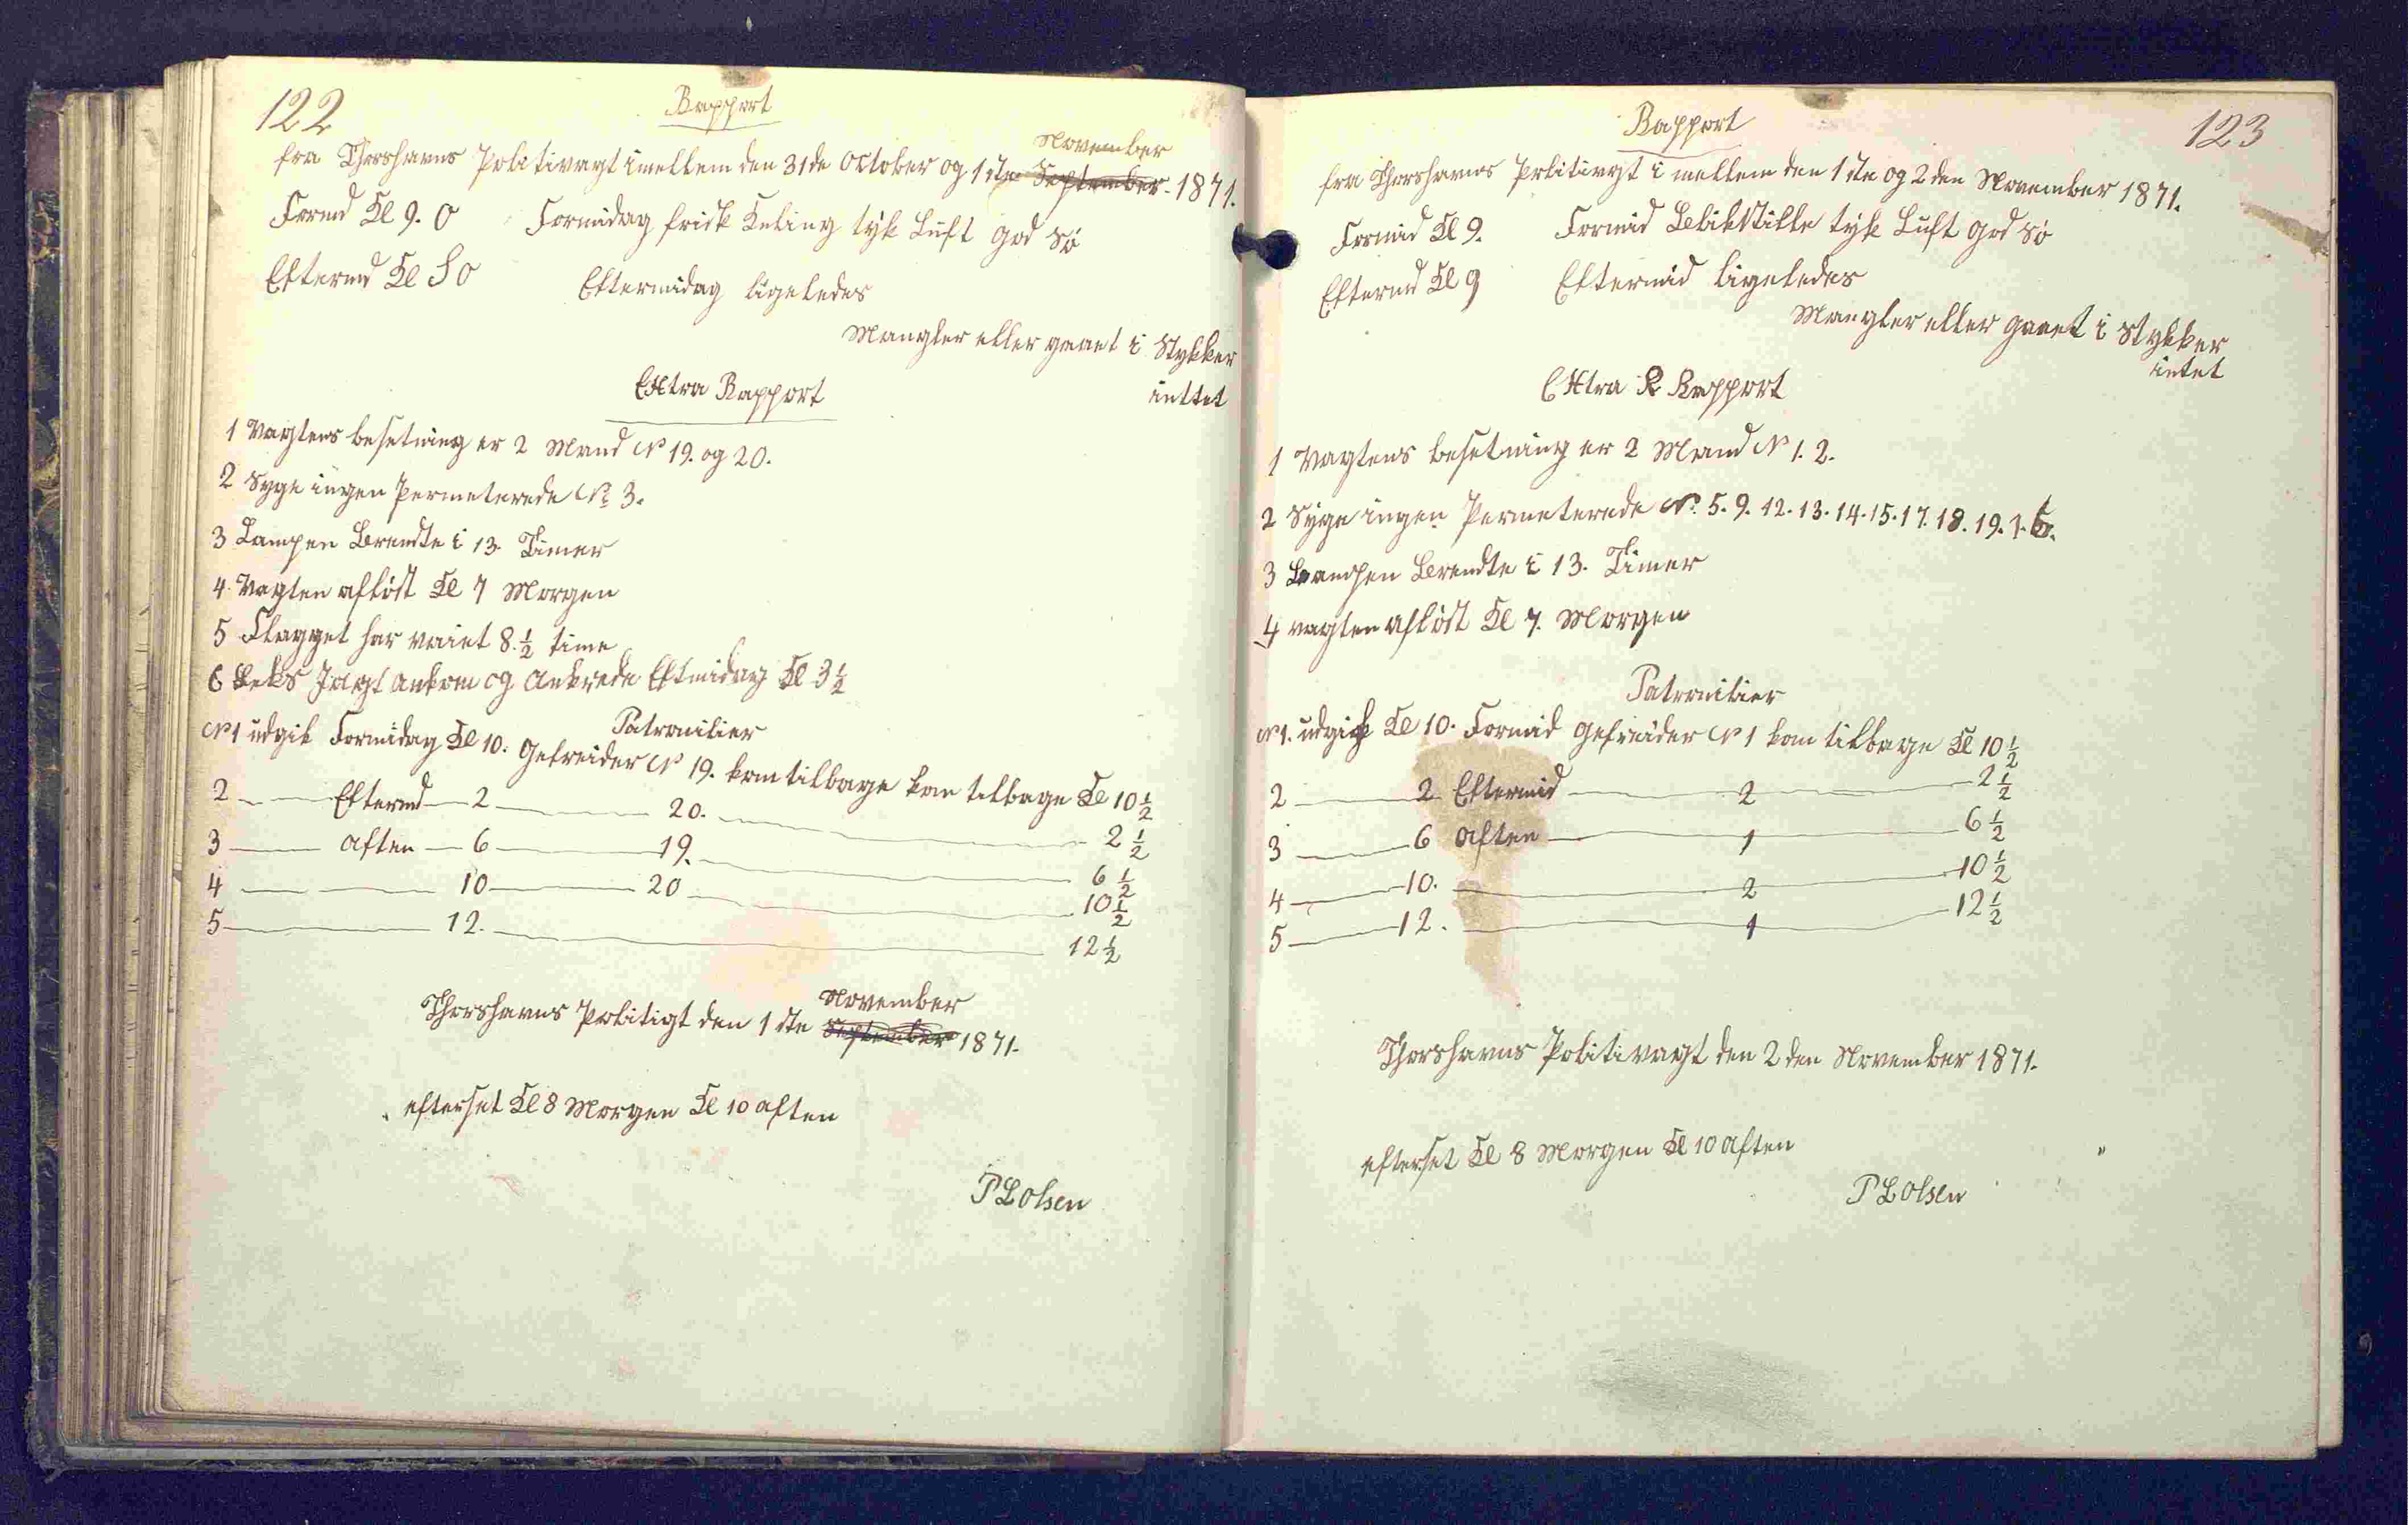 122
Rapport
fra Thorshavns Politivagt imellem den 31de October og 1ste September November 1871.
Formd Kl 9. O Formidag frisk Kuling tyk Luft god Sø
Eftermd Kl SO Eftermidag ligeledes
Mangler eller gaaet i Stykker
inttet
Extra Rapport
1 Vagtens besetning er 2 Mand No 19. og 20.
2 Syge ingen Permeterede No 3.
3 Lampen Brendte i 13. Timer
4. Vagten afløst Kl 7 Morgen
5 Flagget har vaiet 8 ½ time
6 Jagt Ankom og Ankrede Eftmidag Kl 3 ½
Patroulier
No 1 udgik Formidag Kl 10. Gefreider No 19. kom tilbage kom tilbage Kl 10 ½
2 Eftermd 2 20. 2 ½
3 aften 6 19. 6 ½
4 10 20 10 ½
5 12. 12 ½
Thorshavns Politigt den 1ste September November 1871.
efterset Kl 8 Morgen Kl 10 aften
P L Olsen
123
Rapport
fra Thorshavns Politivgt i mellem den 1ste og 2den November 1871.
Formid Kl 9. Formid Blikstille tyk Luft god Sø
Eftermd Kl 9 Eftermid ligeledes
Mangler eller gaaet i Stykker
intet
Extra R Rapport
1 Vagtens besetning er 2 Mand No 1. 2.
2 Syge ingen Permeterede No. 5. 9. 12. 13. 14. 15. 17. 18. 19. 1. 6.
3 Lampen Brendte i 13. Timer
4 vagten afløst Kl 7. Morgen
Patroulier
No 1. udgick Kl 10. Formid Gefreider No 1 kom tilbage Kl 10 ½
2 2 Eftermid 2 2 ½
3 6 aften 1 6 ½
4 10. 2 10 ½
5 12. 1 12 ½
Thorshavns Politivagt den 2den November 1871.
efterset Kl 8 Morgen Kl 10 aften
P L Olsen